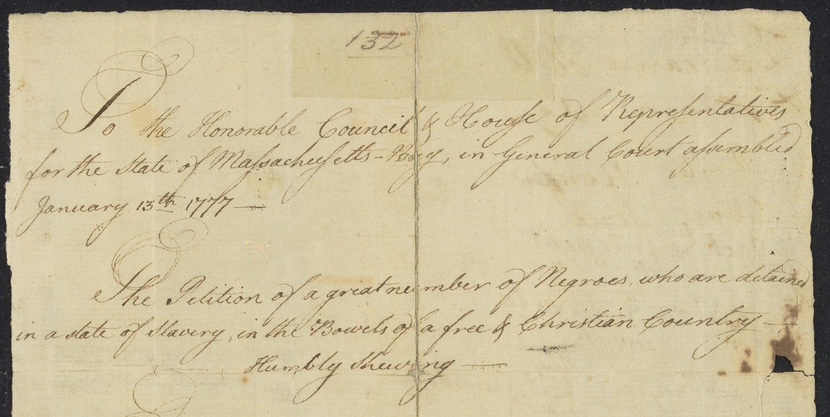 132
To the Honorable Council & House of Representatives
for the State of Massachusetts-Bay, in General Court assembled
January 13th 1777 —
The Petition of a great number of Negroes, who are detained
in a state of Slavery, in the Bowels of a free & Christian Country —
Humbly Shewing —